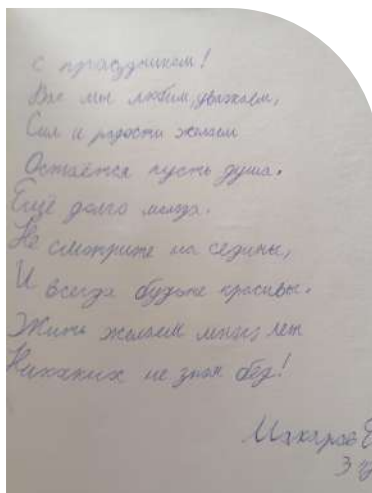 с праздником!
Вас мы любим, уважаем,
Сил и радости желаем
Остаётся пусть душа.
Ещё долго молода.
Не смотрите на седины,
И всегда будьте красивы.
Жить желаем много лет
Никаких не зная бед!
Макаров Е
3